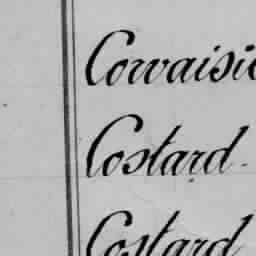 Corvaisie
Costard.
Costard